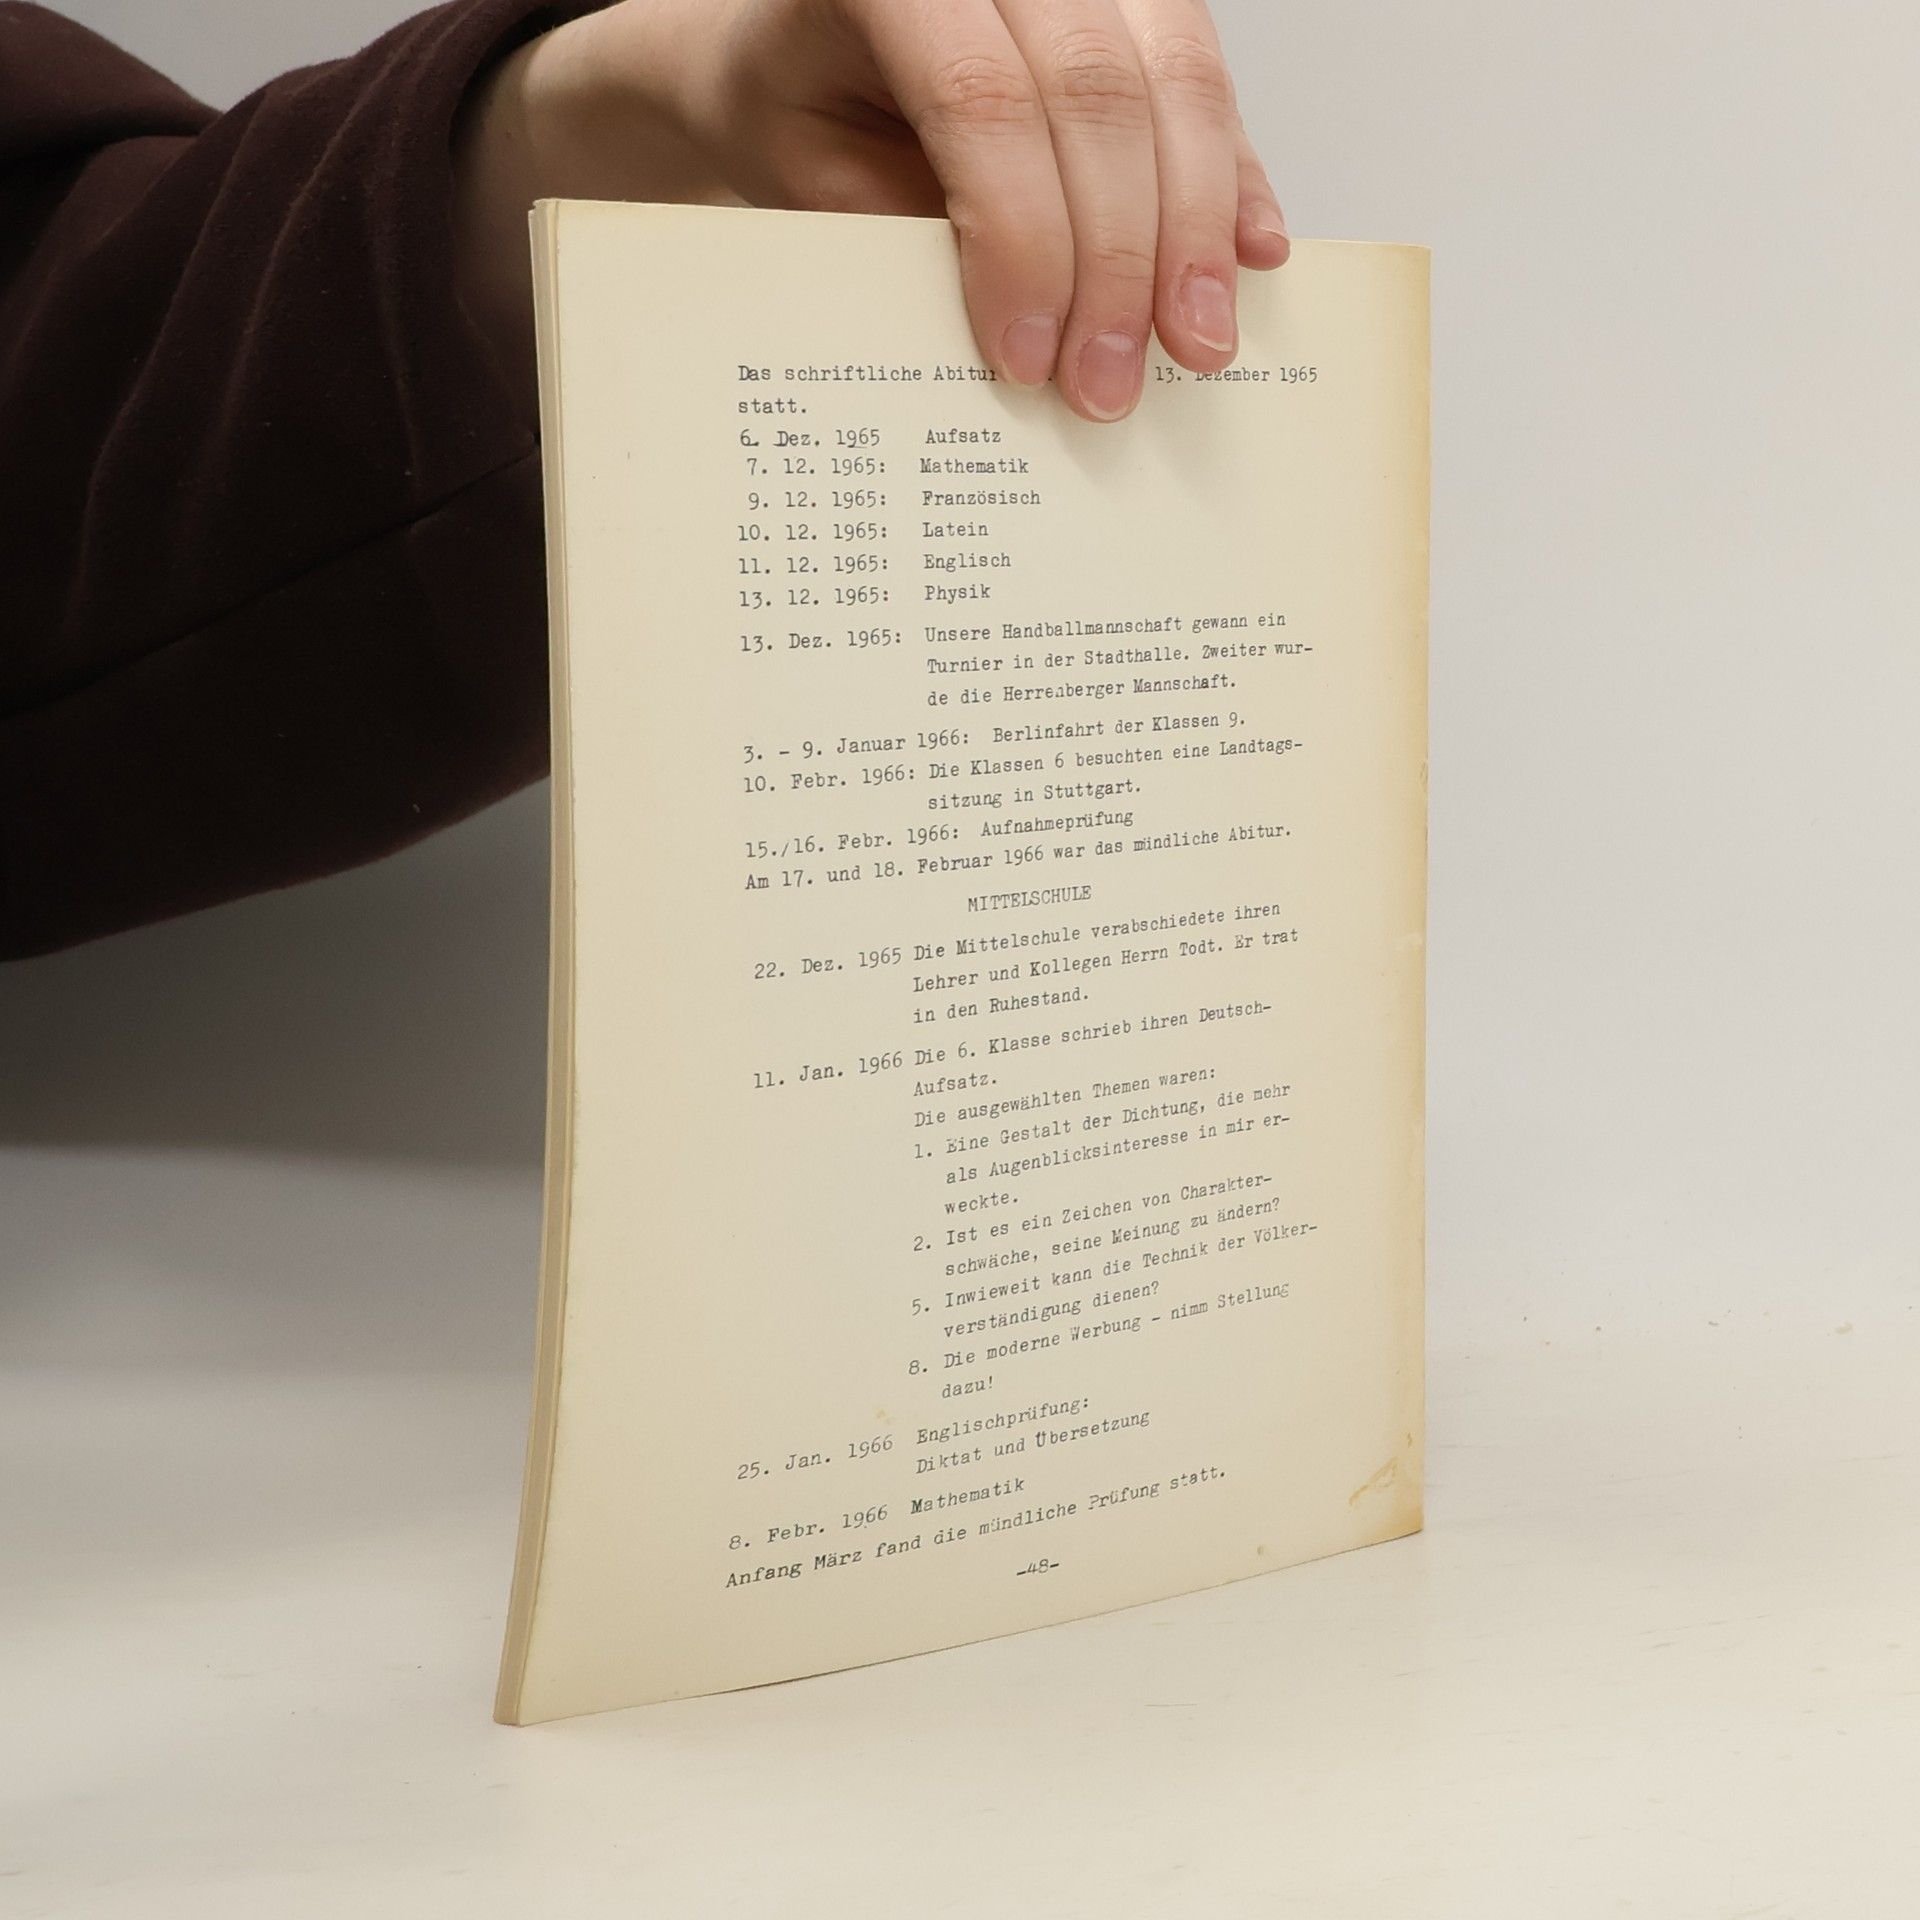 Das schriftliche Abitur 13. Dezember 1965
statt.
6. Dez. 1965 Aufsatz
7. 12. 1965: Mathematik
9. 12. 1965: Französisch
10. 12. 1965: Latein
11. 12. 1965: Englisch
13. 12. 1965: Physik
13. Dez. 1965: Unsere Handballmannschaft gewann ein
Turnier in der Stadthalle. Zweiter wur-
de die Herrenberger Mannschaft.
3. - 9. Januar 1966: Berlinfahrt der Klassen 9.
10. Febr. 1966: Die Klassen 6 besuchten eine Landtags-
sitzung in Stuttgart.
15./16. Febr. 1966: Aufnahmeprüfung
Am 17. und 18. Februar 1966 war das mündliche Abitur.
MITTELSCHULE
22. Dez. 1965 Die Mittelschule verabschiedete ihren
Lehrer und Kollegen Herrn Todt. Er trat
in den Ruhestand.
11. Jan. 1966 Die 6. Klasse schrieb ihren Deutsch-
Aufsatz.
Die ausgewählten Themen waren:
1. Eine Gestalt der Dichtung, die mehr
als Augenblicksinteresse in mir er-
weckte.
2. Ist es ein Zeichen von Charakter-
schwäche, seine Meinung zu ändern?
5. Inwieweit kann die Technik der Völker-
verständigung dienen?
8. Die moderne Werbung - nimm Stellung
dazu!
25. Jan. 1966 Englischprüfung:
Diktat und Übersetzung
8. Febr. 1966 Mathematik
Anfang März fand die mündliche Prüfung statt.
-48-